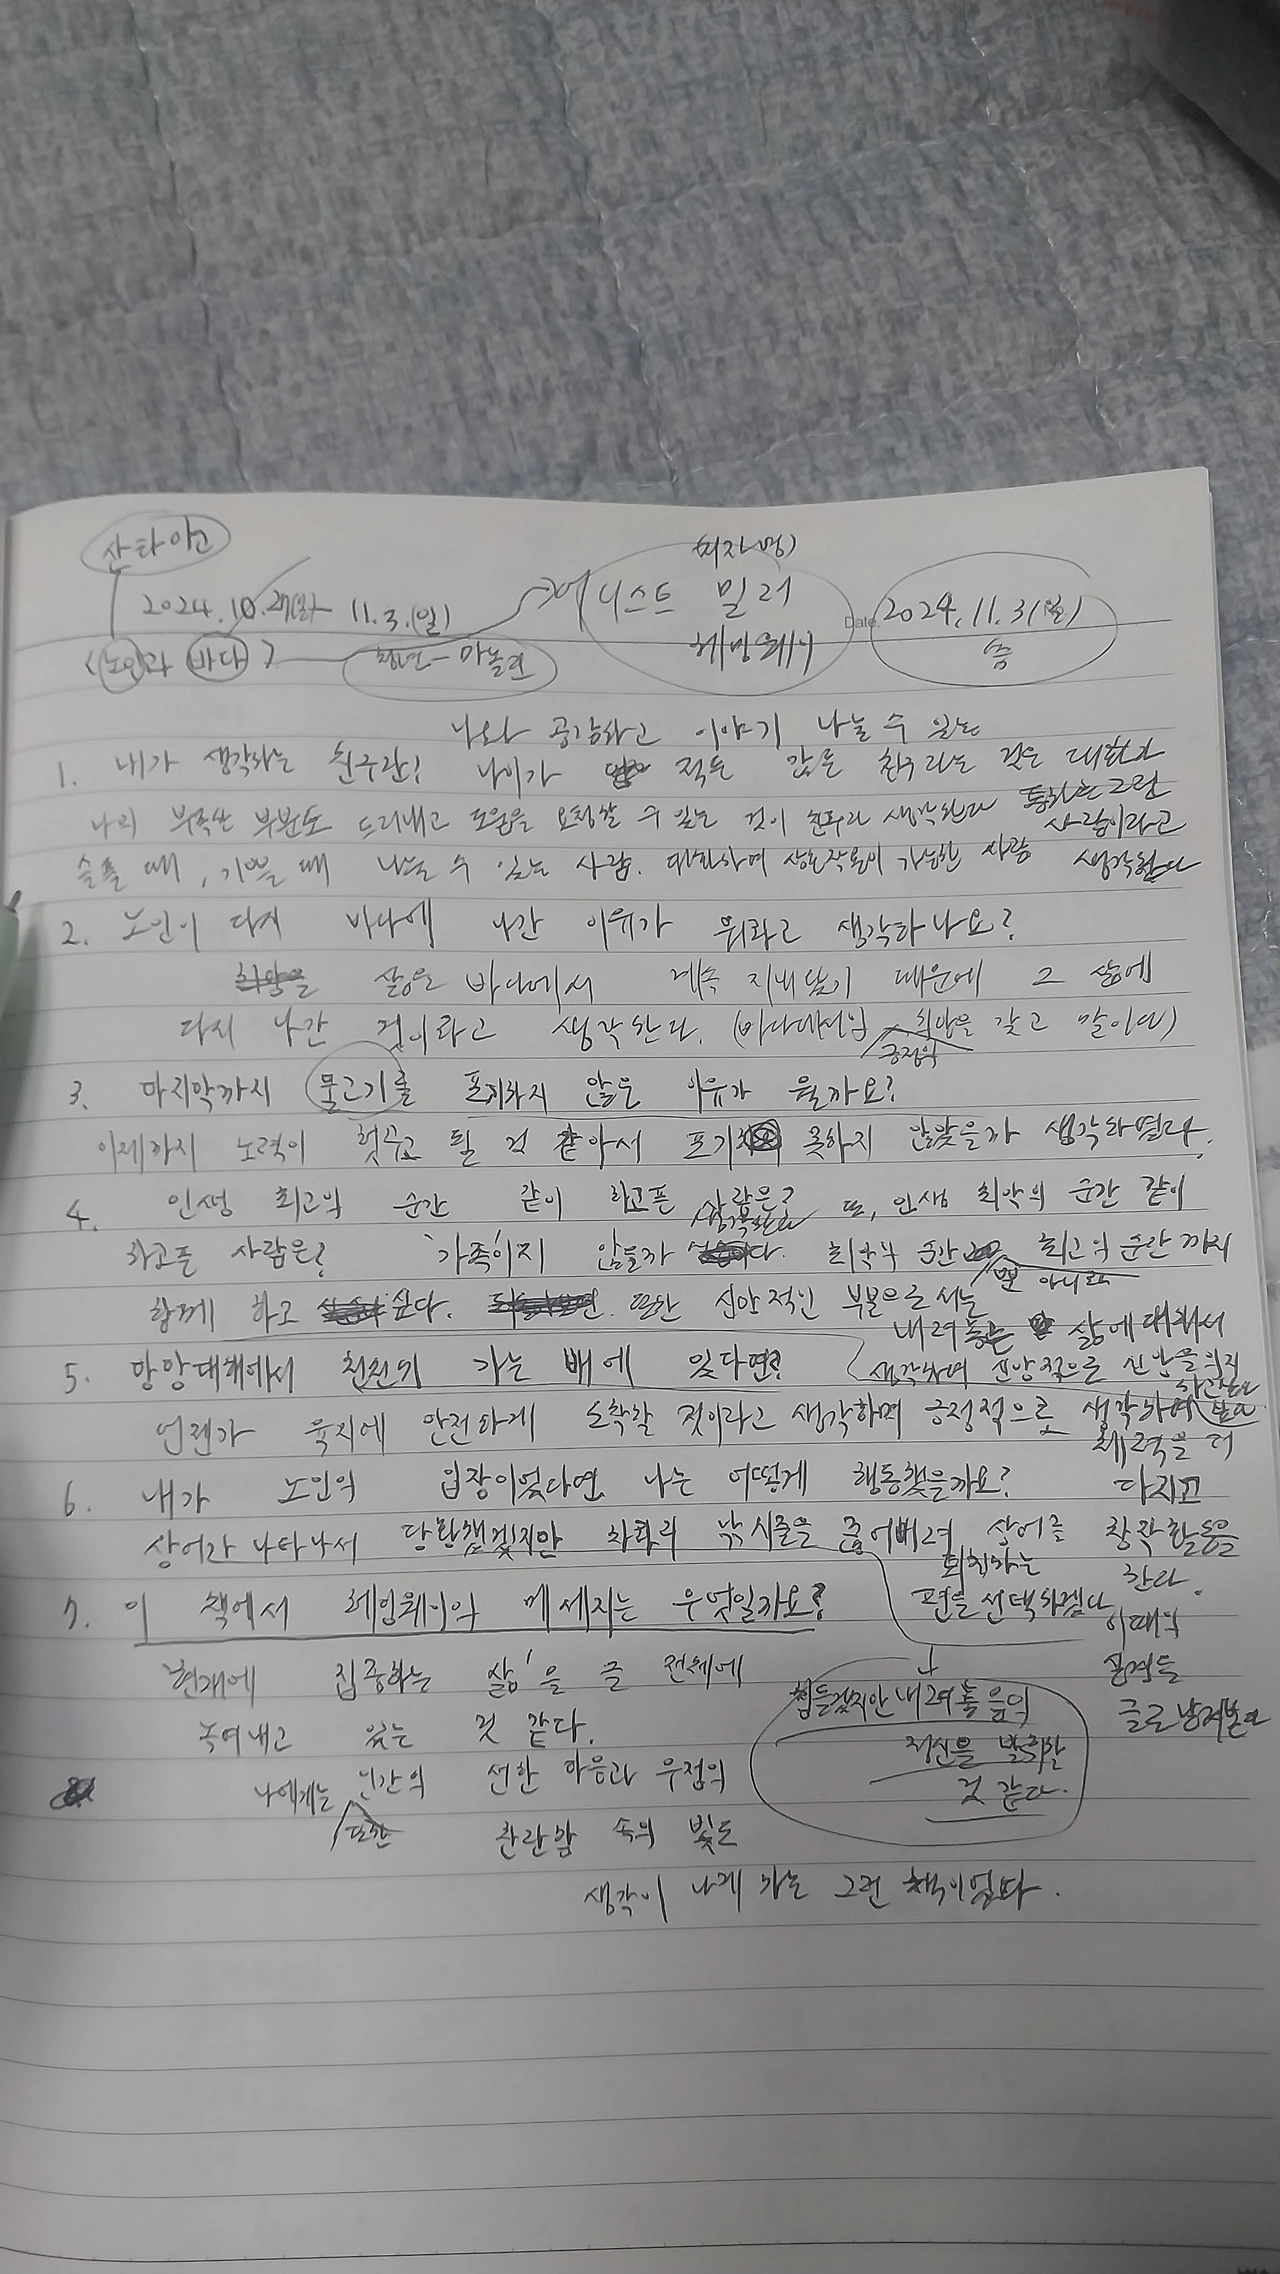 산타아고
(저자명)
2024. 10. 27(일)- 11. 3. (일) 어니스트 밀러
Date. 2024. 11. 3(일)
<노인과 바다> 청년-마놀린 헤밍웨이
나와 공감하고 이야기 나눌 수 있는
1. 내가 생각하는 친구란? 나이가 적든 많든 친구라는 것은 대화가
나의 부족한 부분도 드러내고 도움을 요청할 수 있는 것이 친구라 생각한다 통하는 그런
사람이라고
슬플 때, 기쁠 때 나눌 수 있는 사람. 대화하며 상호작용이 가능한 사람 생각한다
2. 노인이 다시 바다에 나간 이유가 뭐라고 생각하나요?
삶을 바다에서 계속 지내왔기 때문에 그 삶에
다시 나간 것이라고 생각한다. (바다에서의 희망을 갖고 말이다)
긍정의
3. 마지막까지 물고기를 포기하지 않은 이유가 뭘까요?
이제까지 노력이 헛수고 될 것 같아서 포기 못하지 않았을까 생각하였다.
4. 인생 최고의 순간 같이 하고픈 사람은? 또, 인생 최악의 순간 같이
생각한다
하고픈 사람은? '가족'이지 않을까 최악의 순간 최고의 순간까지
뿐 아니라
함께 하고 싶다. 또한 신앙적인 부분으로서는
내려놓는 삶에 대해서
5. 망망대해에서 천천히 가는 배에 있다면? 생각하며 신앙적으로 신앙을 의지
하고싶다
언젠가 육지에 안전하게 도착할 것이라고 생각하며 긍정적으로 생각하며
체력을 더
6. 내가 노인의 입장이었다면 나는 어떻게 행동했을까요? 다지고
상어가 나타나서 당황했겠지만 차라리 낚시줄을 끊어버려 상어를 창작활동을
퇴치하는 한다.
7. 이 책에서 헤밍웨이의 메세지는 무엇일까요? 편을 선택하겠다
이때의
'현재에 집중하는 삶'을 글 전체에
글로 남겨본다
힘들겠지만 내려놓음의
녹여내고 있는 것 같다.
정신을 발휘할
것 같다.
나에게는 인간의 선한 마음과 우정의
또한
찬란함 속의 빛도
생각이 나게 하는 그런 책이었다.